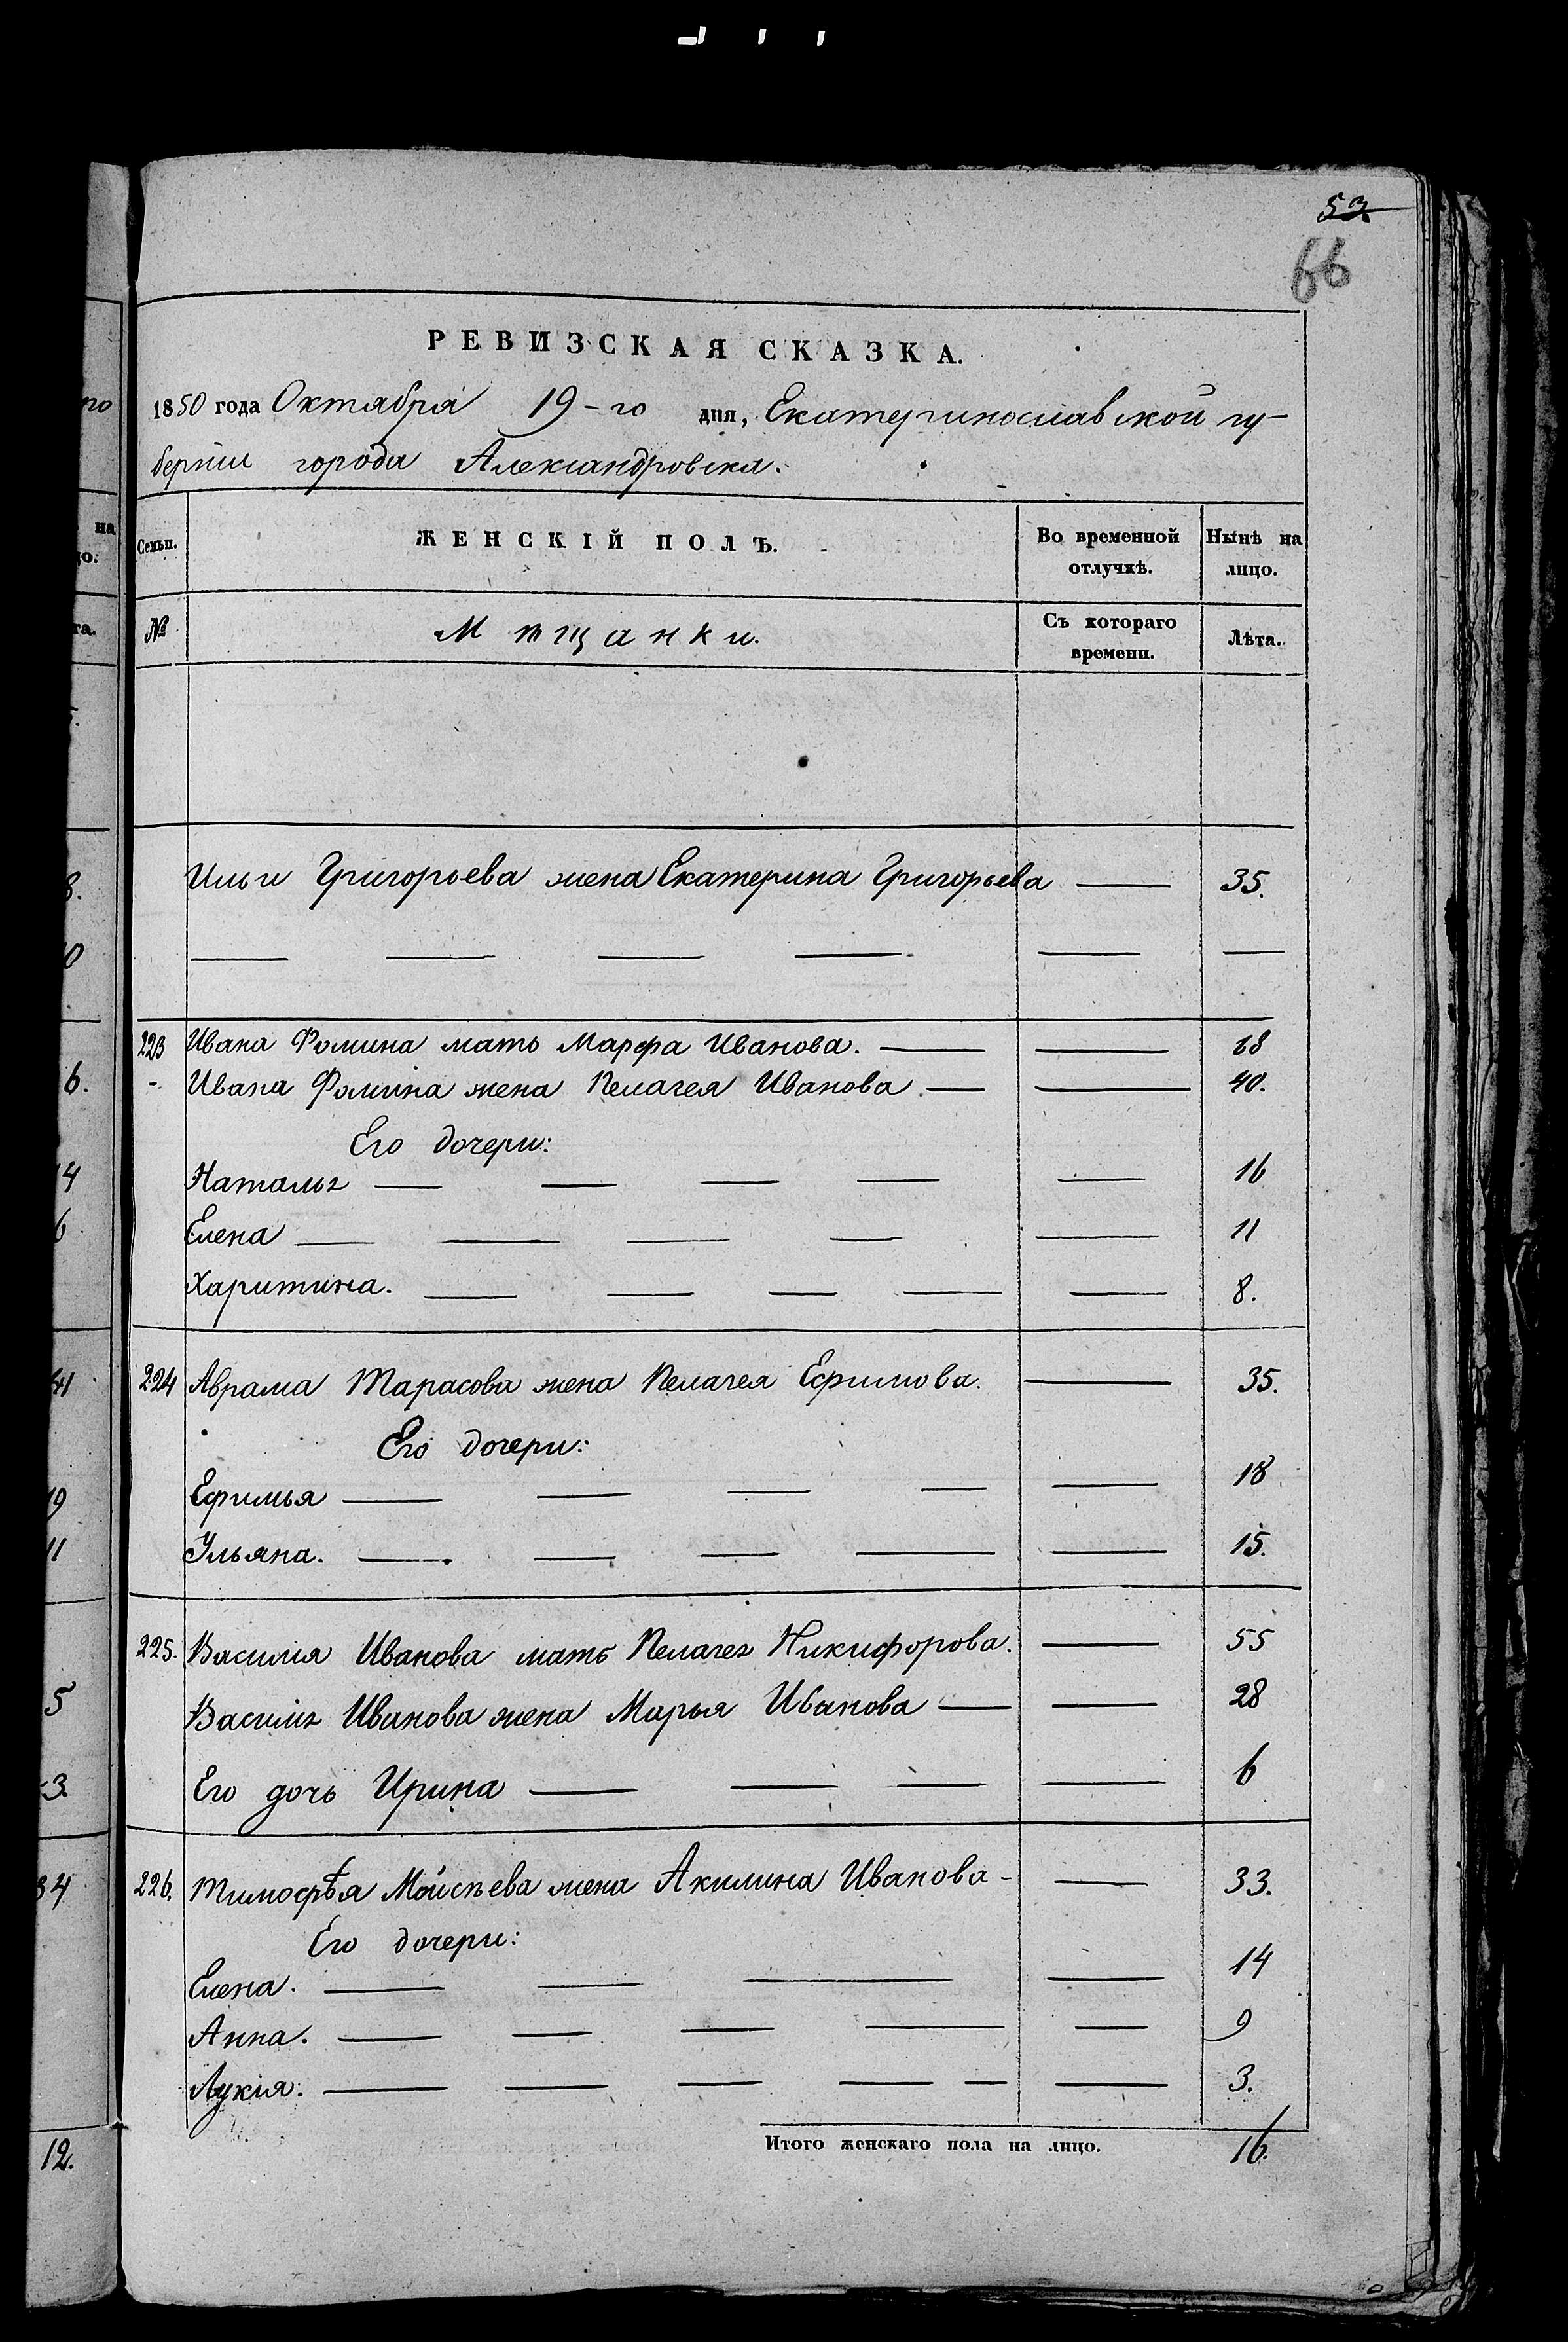 53.
66
РЕВИЗСКАЯ СКАЗКА.
1850 года Октября 19-го дня, Екатеринославской гу-
берніи города Александровска.
Семьи. ЖЕНСКІЙ ПОЛЪ. Во временной отлучкѣ. Нынѣ на лицо.
№ Мѣщанки. Съ котораго времени. Лѣта.
Ильи Григорьева жена Екатерина Григорьева — 35.
— — — — — —
223 Ивана Фомина мать Марфа Иванова. — — 68
- Ивана Фомина жена Пелагея Иванова — — 40.
Его дочери:
Наталья — — — — — 16
Елена — — — — — 11
Харитина. — — — — — 8.
224 Аврама Тарасова жена Пелагея Ефимова. — 35.
Его дочери:
Ефимья — — — — — 18
Ульяна. — — — — — 15.
225. Василія Иванова мать Пелагея Никифорова. — 55
Василія Иванова жена Марья Иванова — — 28
Его дочь Ирина — — — — 6
226. Тимофѣя Моисѣева жена Акилина Иванова - — 33.
Его дочери:
Елена. — — — — 14
Анна. — — — — — 9
Лукія. — — — — — — 3.
Итого женскаго пола на лицо. 16.